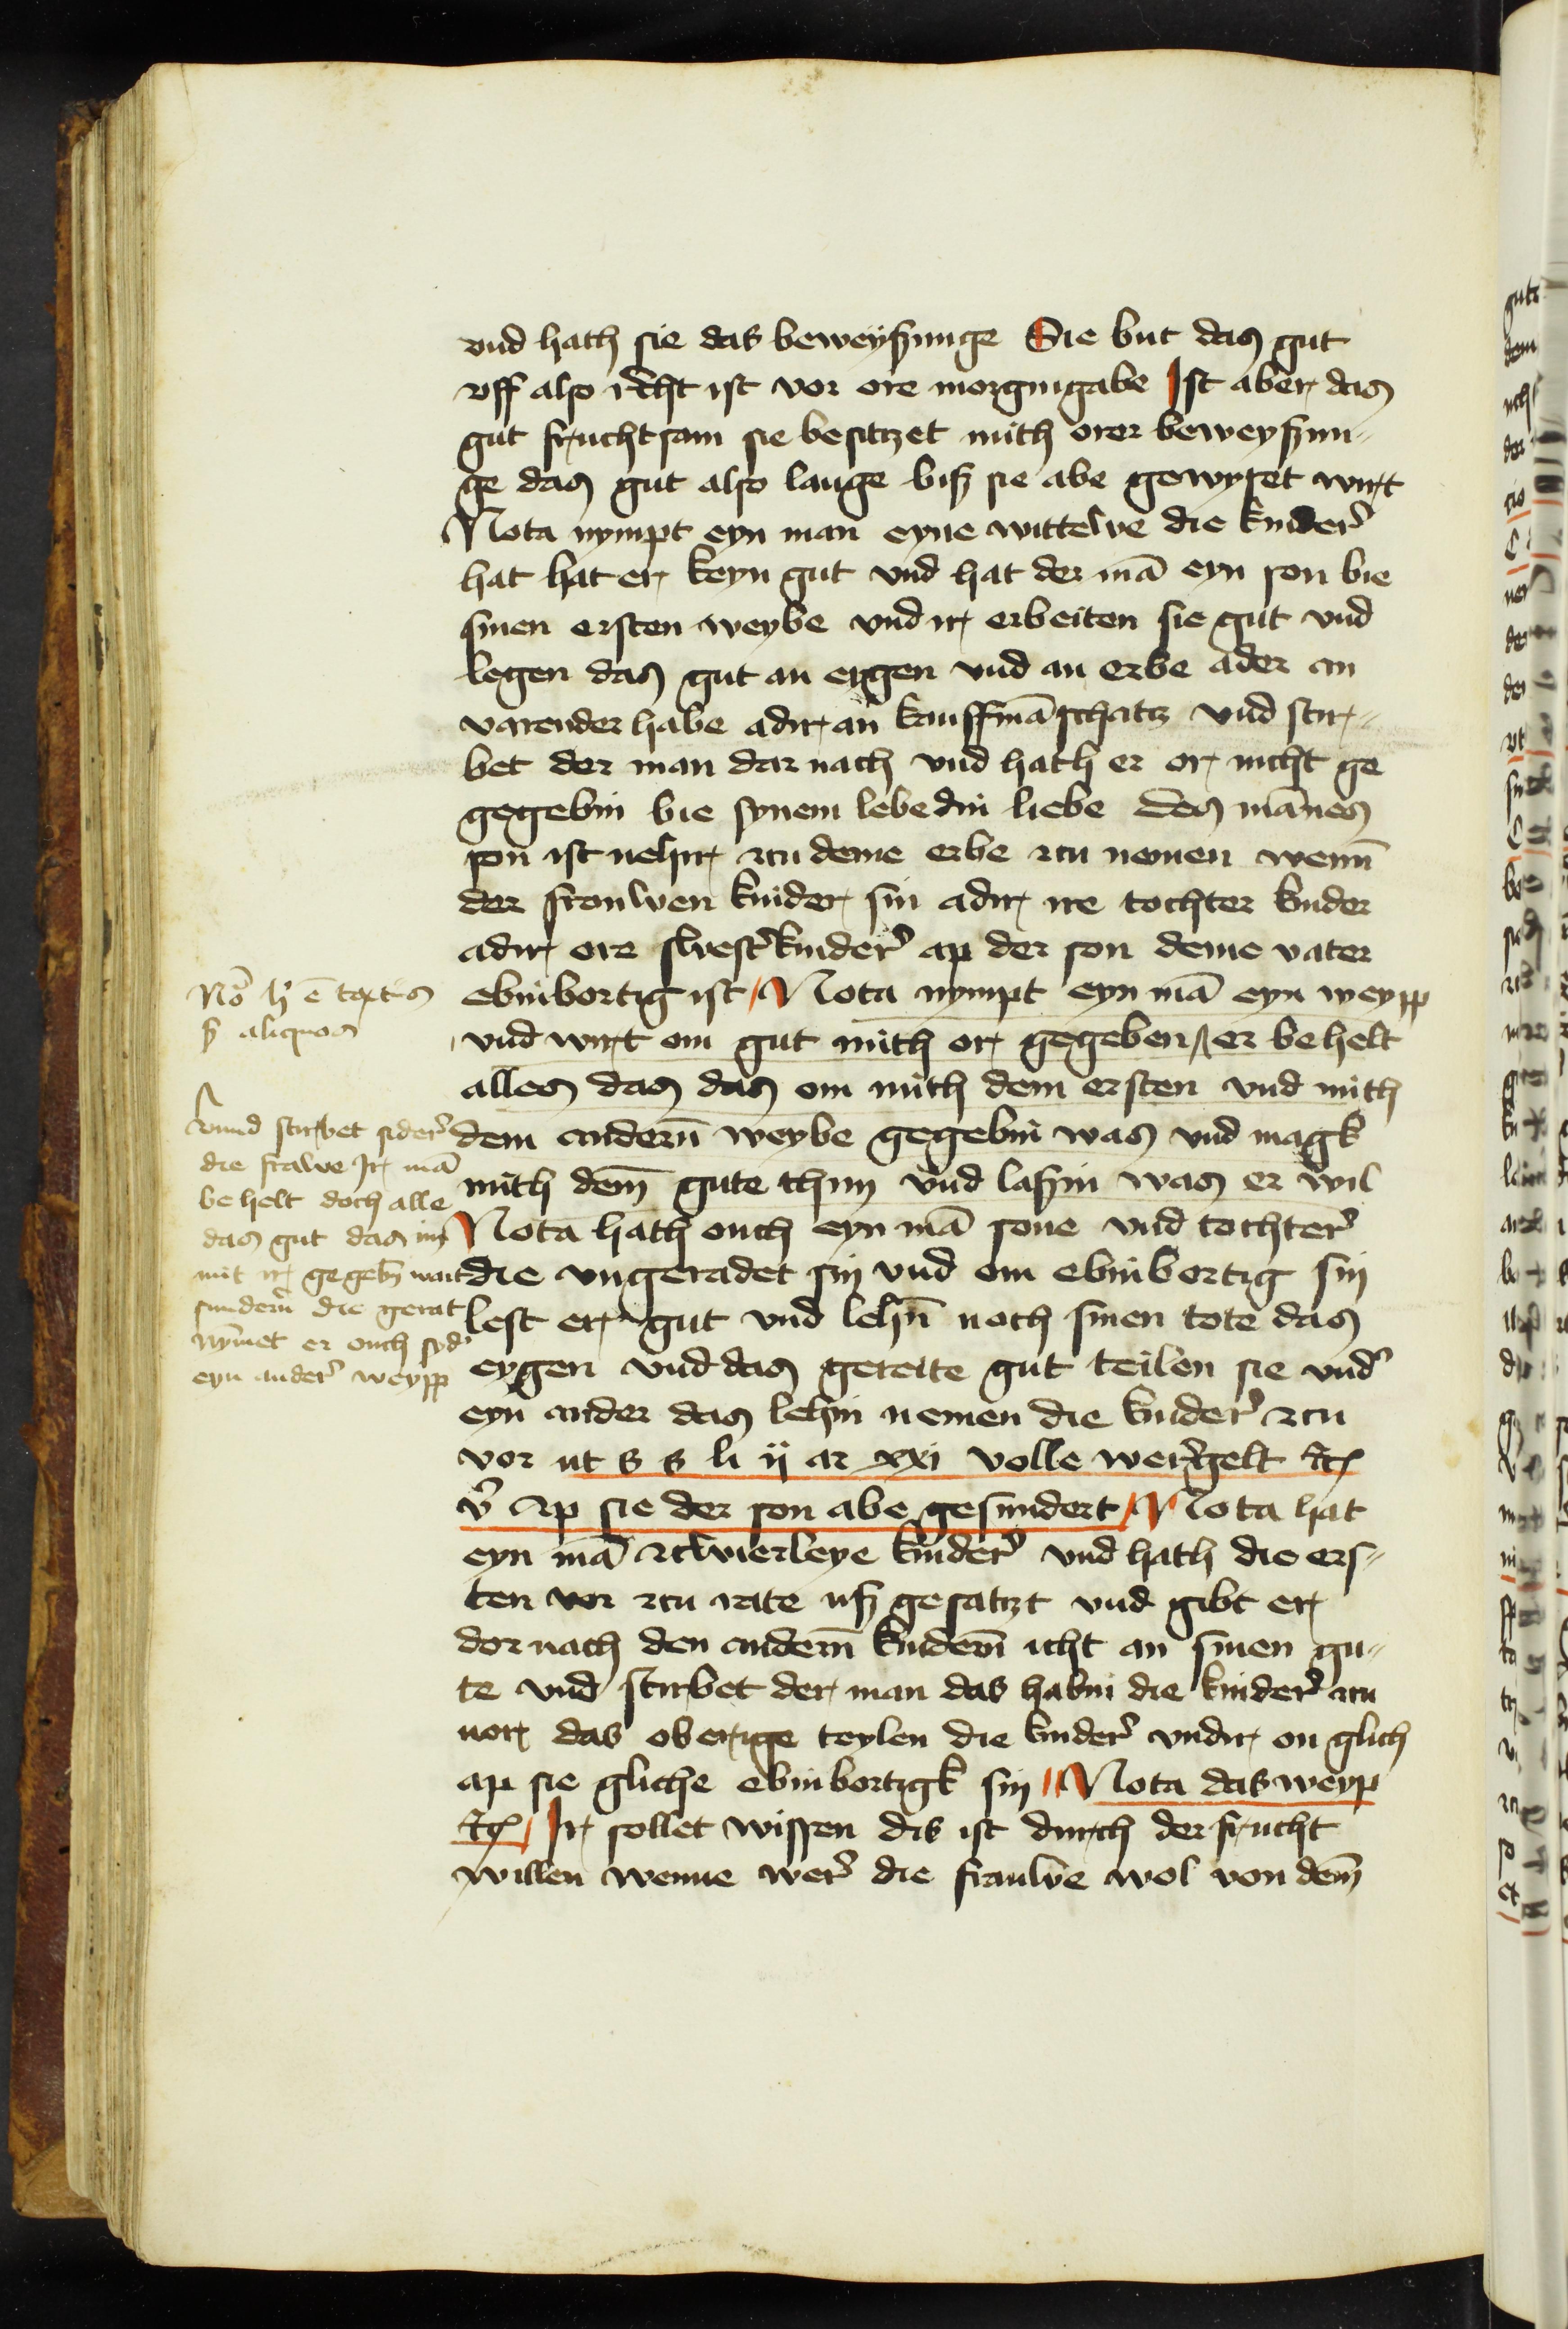 vnd hath sie das beweyßunge Sie but das gut
vff also recht ist vor ore morgingabe Ist aber das
gut fruchtsam sie besitzet mith orer beweyßun-
ge das gut also lange biß sie abe gewyset wirt
Nota nympt eyn man eyne wittewe die kinder
hat hat er keyn gut vnd hat der mā eyn son bie
sinen ersten weybe vnd ir erbeiten sie gut vnd
legen das gut an eygen vnd an erbe ader an
varender habe adir an kauffmāschatz vnd stir-
bet der man dar nach vnd hath er or nicht ge
gegebin bie synem lebedin liebe des mānes
son ist nehir zcu deme erbe zcu nemen wenn
der frouwen kinder sin adir ire tochter kinder
adir ore swest'kinder ap der son deme vater
ebinbortig ist Nota nympt eyn mā eyn weypp
vnd wirt om gut mith or gegeben er behelt
alles das das om mith dem ersten vnd mith
dem andern̄ weybe gegebin was vnd magk
mith dem̄ gute thun vnd laßin was er wil
Nota hath ouch eyn mā sone vnd tochter
die vngeradet sin vnd om ebinbortig sin
lest er gut vnd lehn̄ noch sinen tote das
eygen vnd das gereite gut teilen sie vnd'
eyn ander das lehin nemen die kinder zcu
vor ut s s li ij ar xxi volle wergelt etc
v' Ap sie der son abe gesundert Nota hat
eyn mā zcwierleye kinder vnd hath die ers-
ten vor zcu rate uß gesatzt vnd gibt er
dor nach den andern̄ kindern̄ icht an sinen gu-
te vnd stirbet der man das habin die kinder zcu
uor das oberige teylen die kinder vndir on glich
ap sie gliche ebinbortigk sin Nota das weyp
etc Ir sollet wissen dis ist durch der frucht
willen wenne wer die frauwe wol von dem̄
No h' ē textus
s' aliquos
vnnd stirbet sider
die frawe Ir mā
behelt doch alle
das gut das im
mit ir gegeb̄ wart
sundern̄ die gerat
nȳmet er ouch syd'
eyn ander weypp